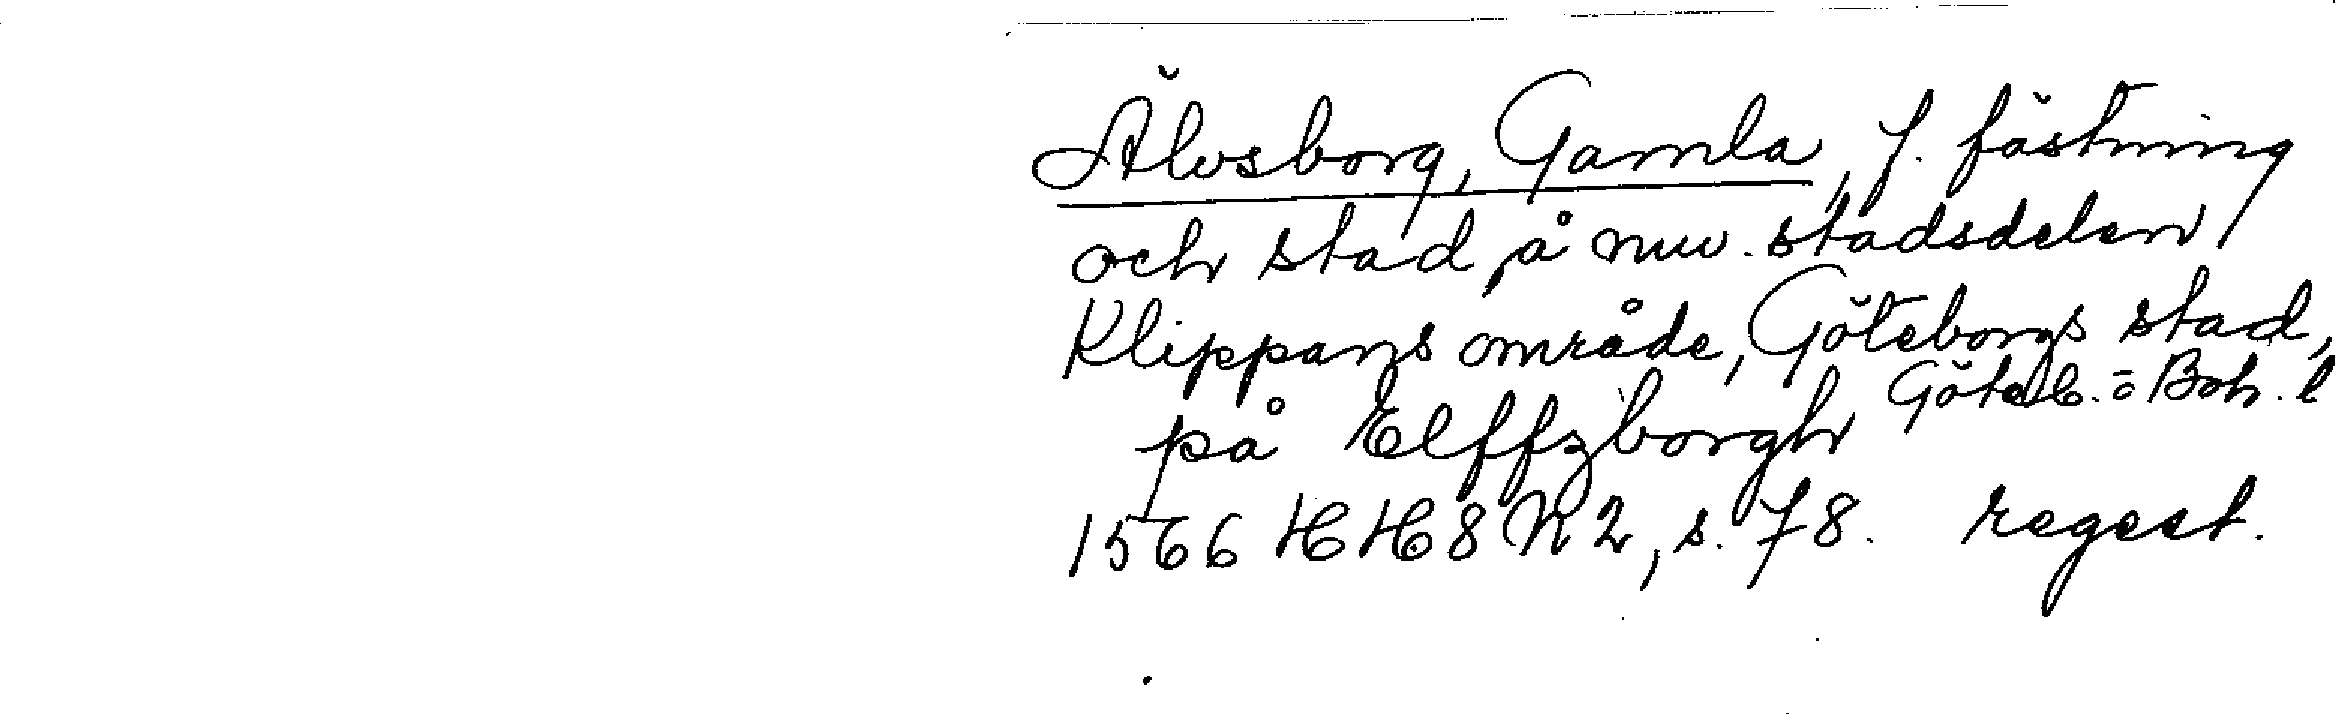 Älvsborg, Gamla, f. fästning
och stad, å nuv. stadsdelen
Klippans område, Göteborgs stad,
Göteb. o Boh. l
på Elffzborgh
1566 HH 8 N 2, s. 78. regest.